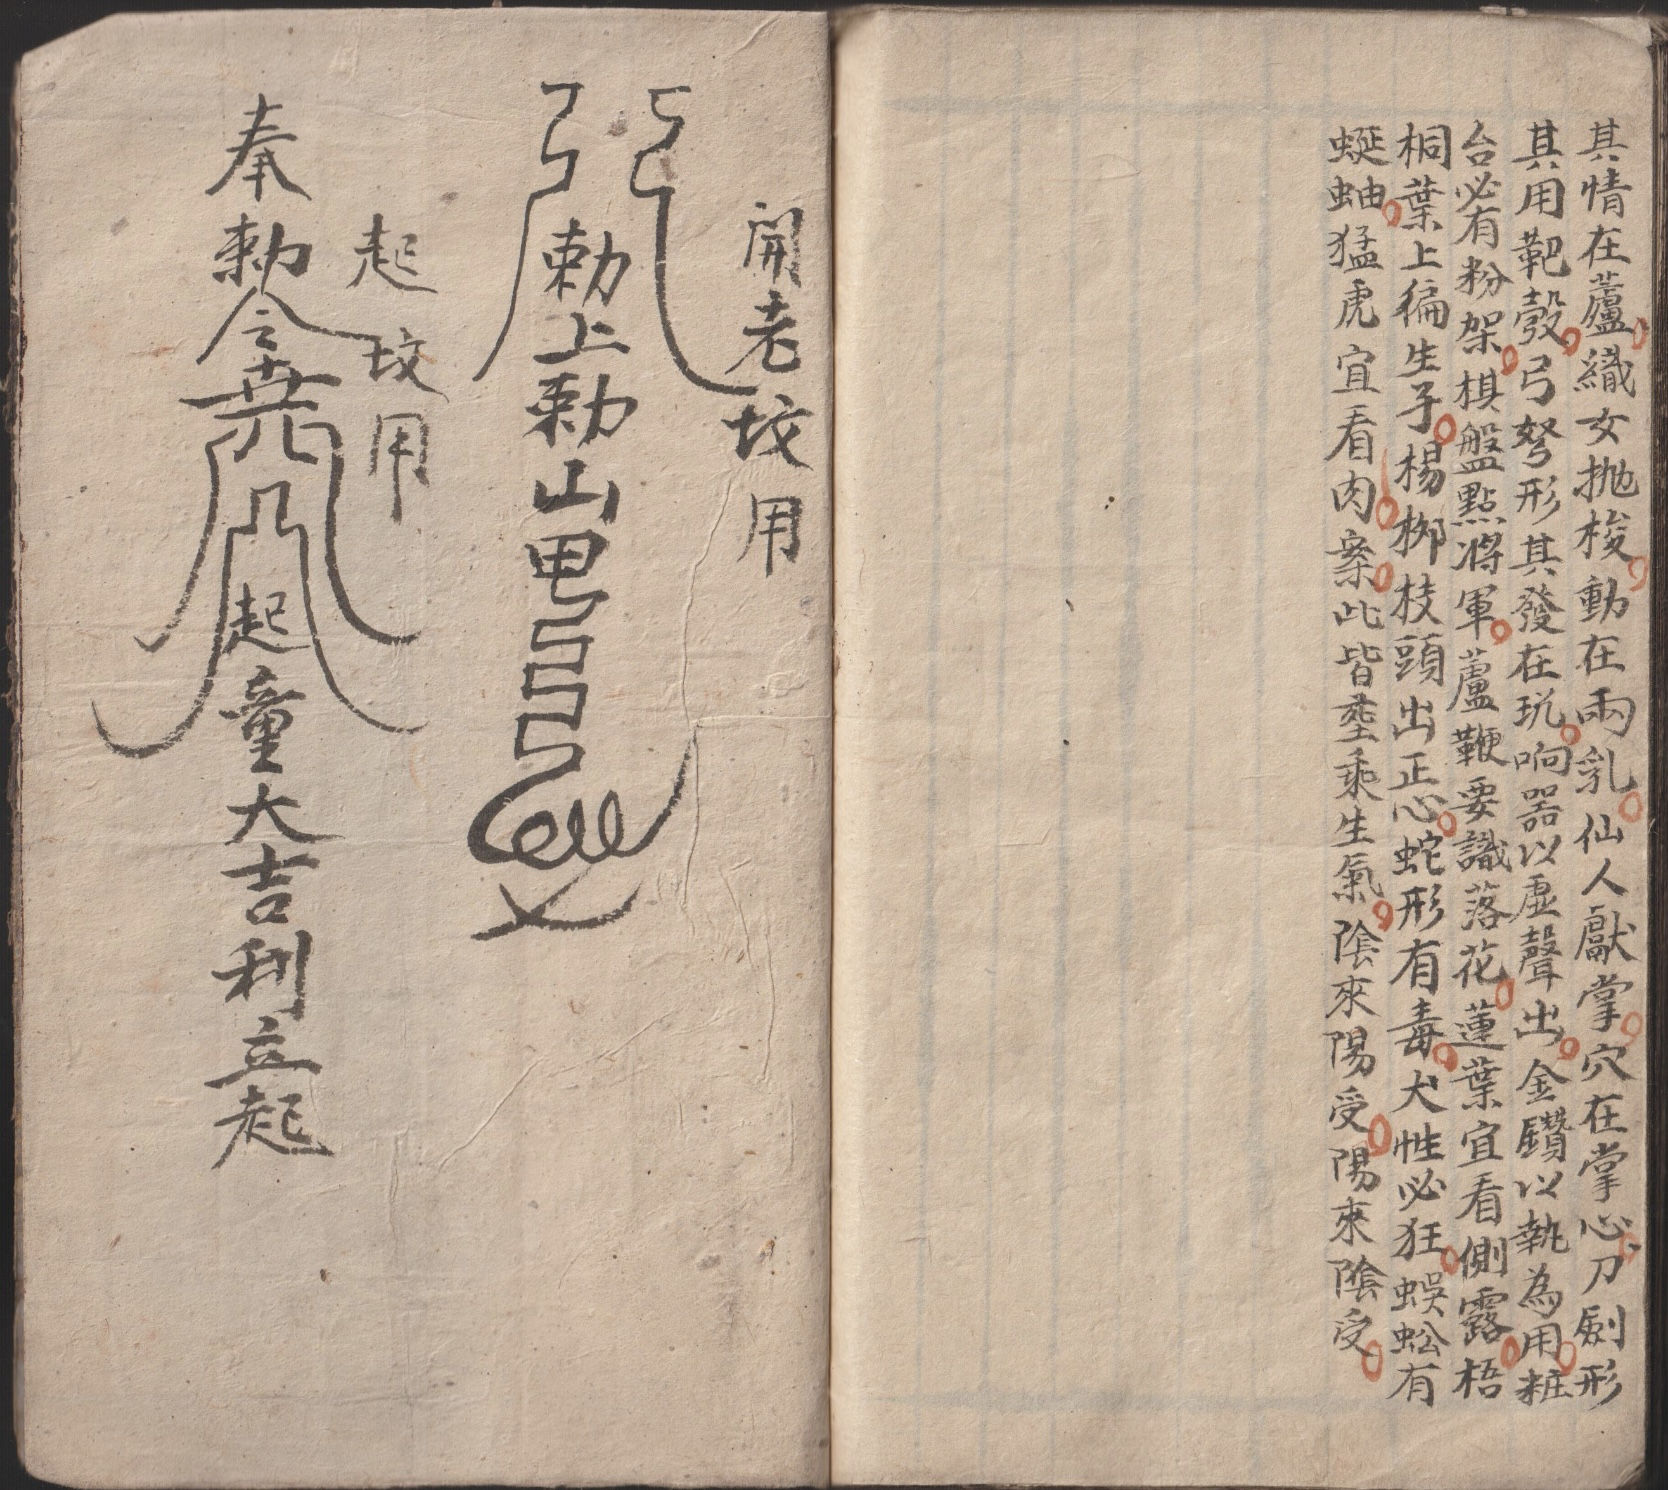 其情在蘆織女抛梭動在兩乳仙人獻掌穴在掌心刀劍形
其用靶彀弓弩形其發在玩响器以虛聲出金鑽以執為用粧
台必有粉架棋盤點將軍蘆鞭要識落花蓮葉宜看側露梧
桐葉上徧生子楊柳枝頭出正心蛇形有毒犬性必狂蜈蚣有
蜒蚰猛虎宜看肉案此皆塟乘生氣陰來陽受陽來陰受
開老坟用
勅上勅山
起坟用
奉勅令
起童大吉利立起